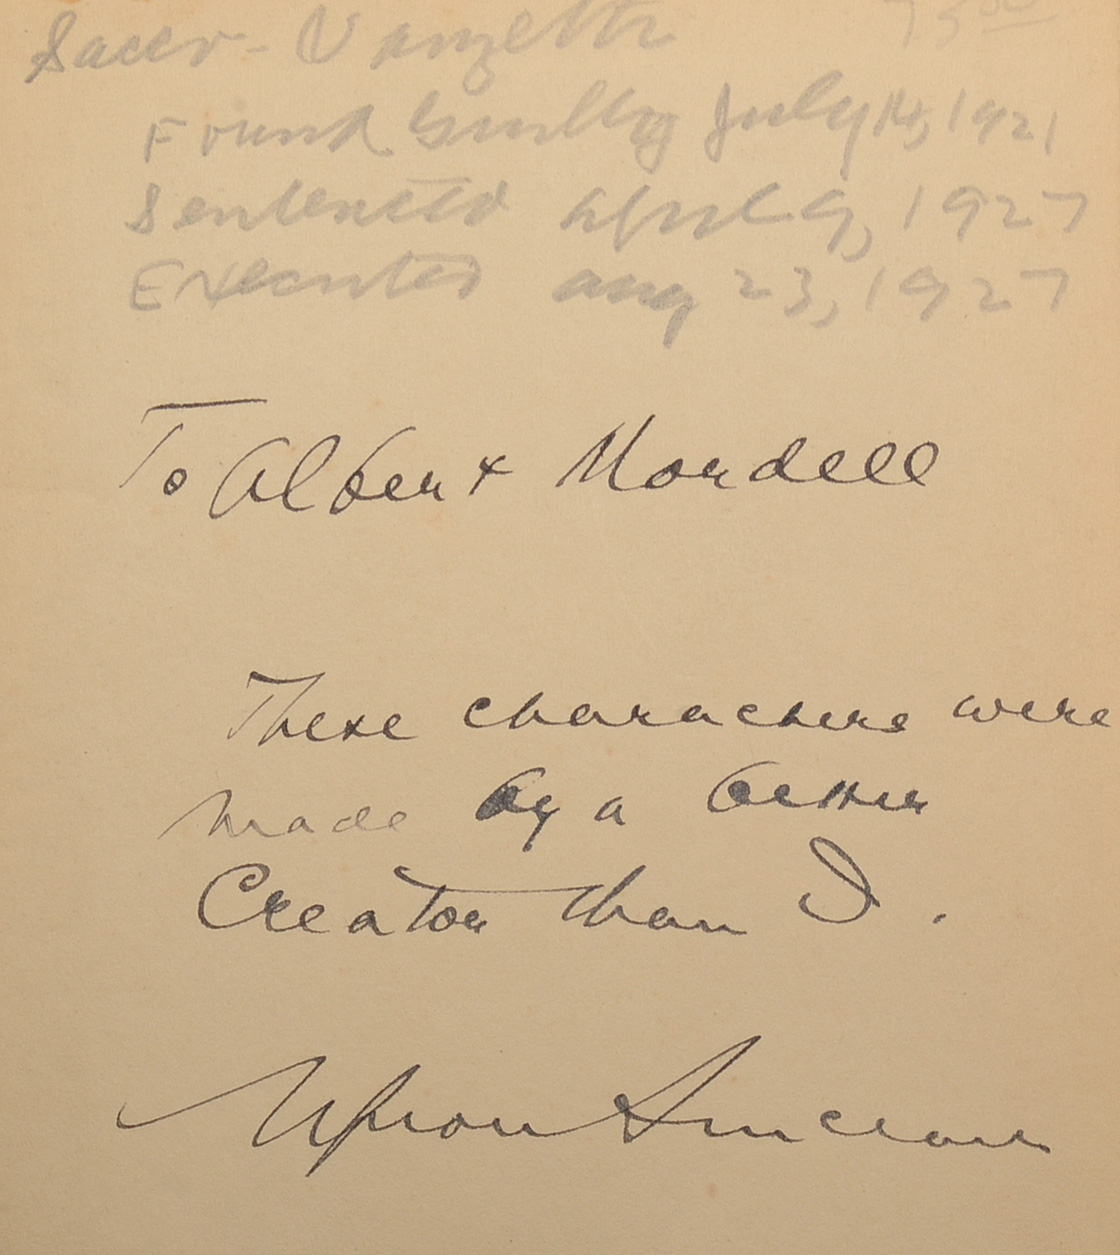 Sacco - Vanzetti 75.00
Found Guilty July 14, 1921
Sentenced April 9, 1927
Executed Aug 23, 1927
To Albert Mordell
These characters were
made by a better
Creator than I.
Upton Sinclair